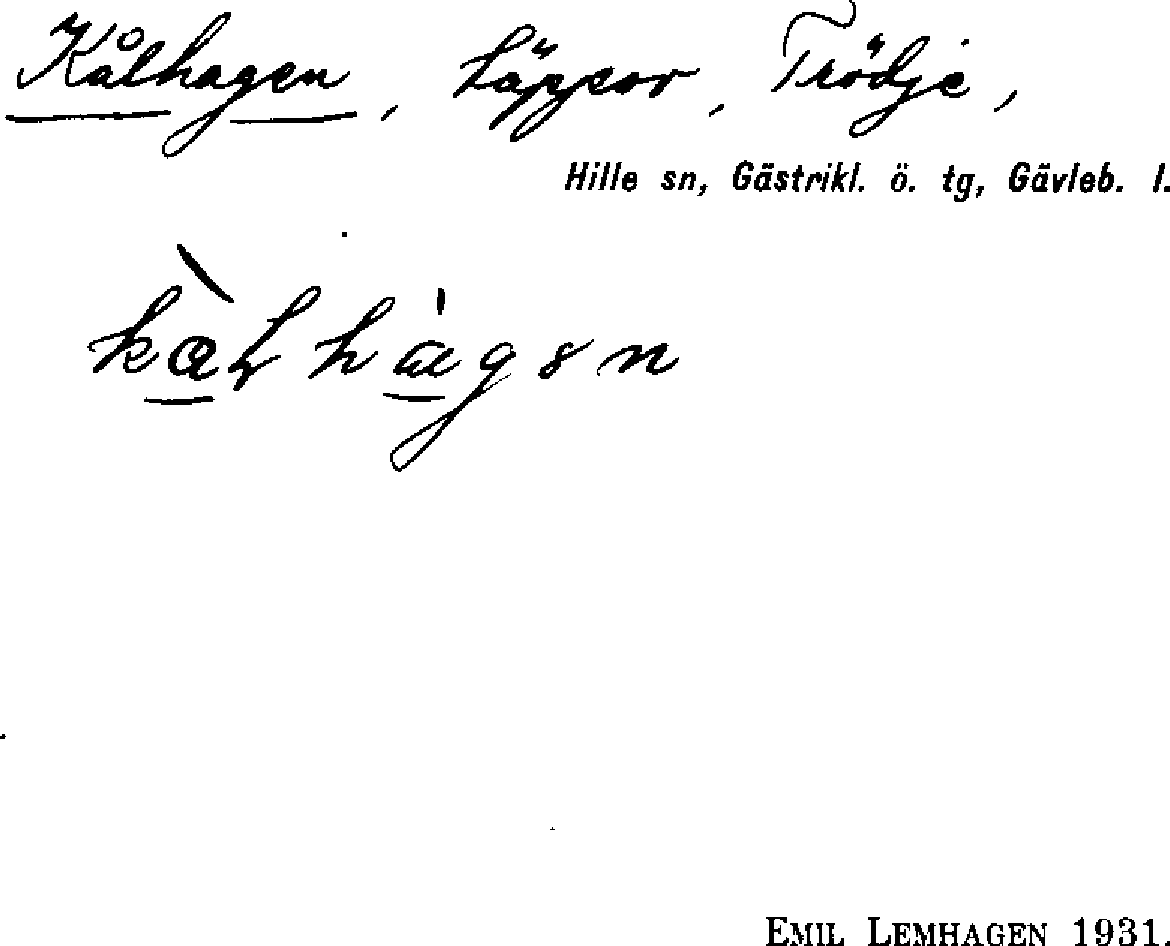 Kålhagen, Täppor, Trödje,
Hille sn, Gästrikl. ö. tg, Gävleb. l.
EMIL LEMHAGEN 1931.